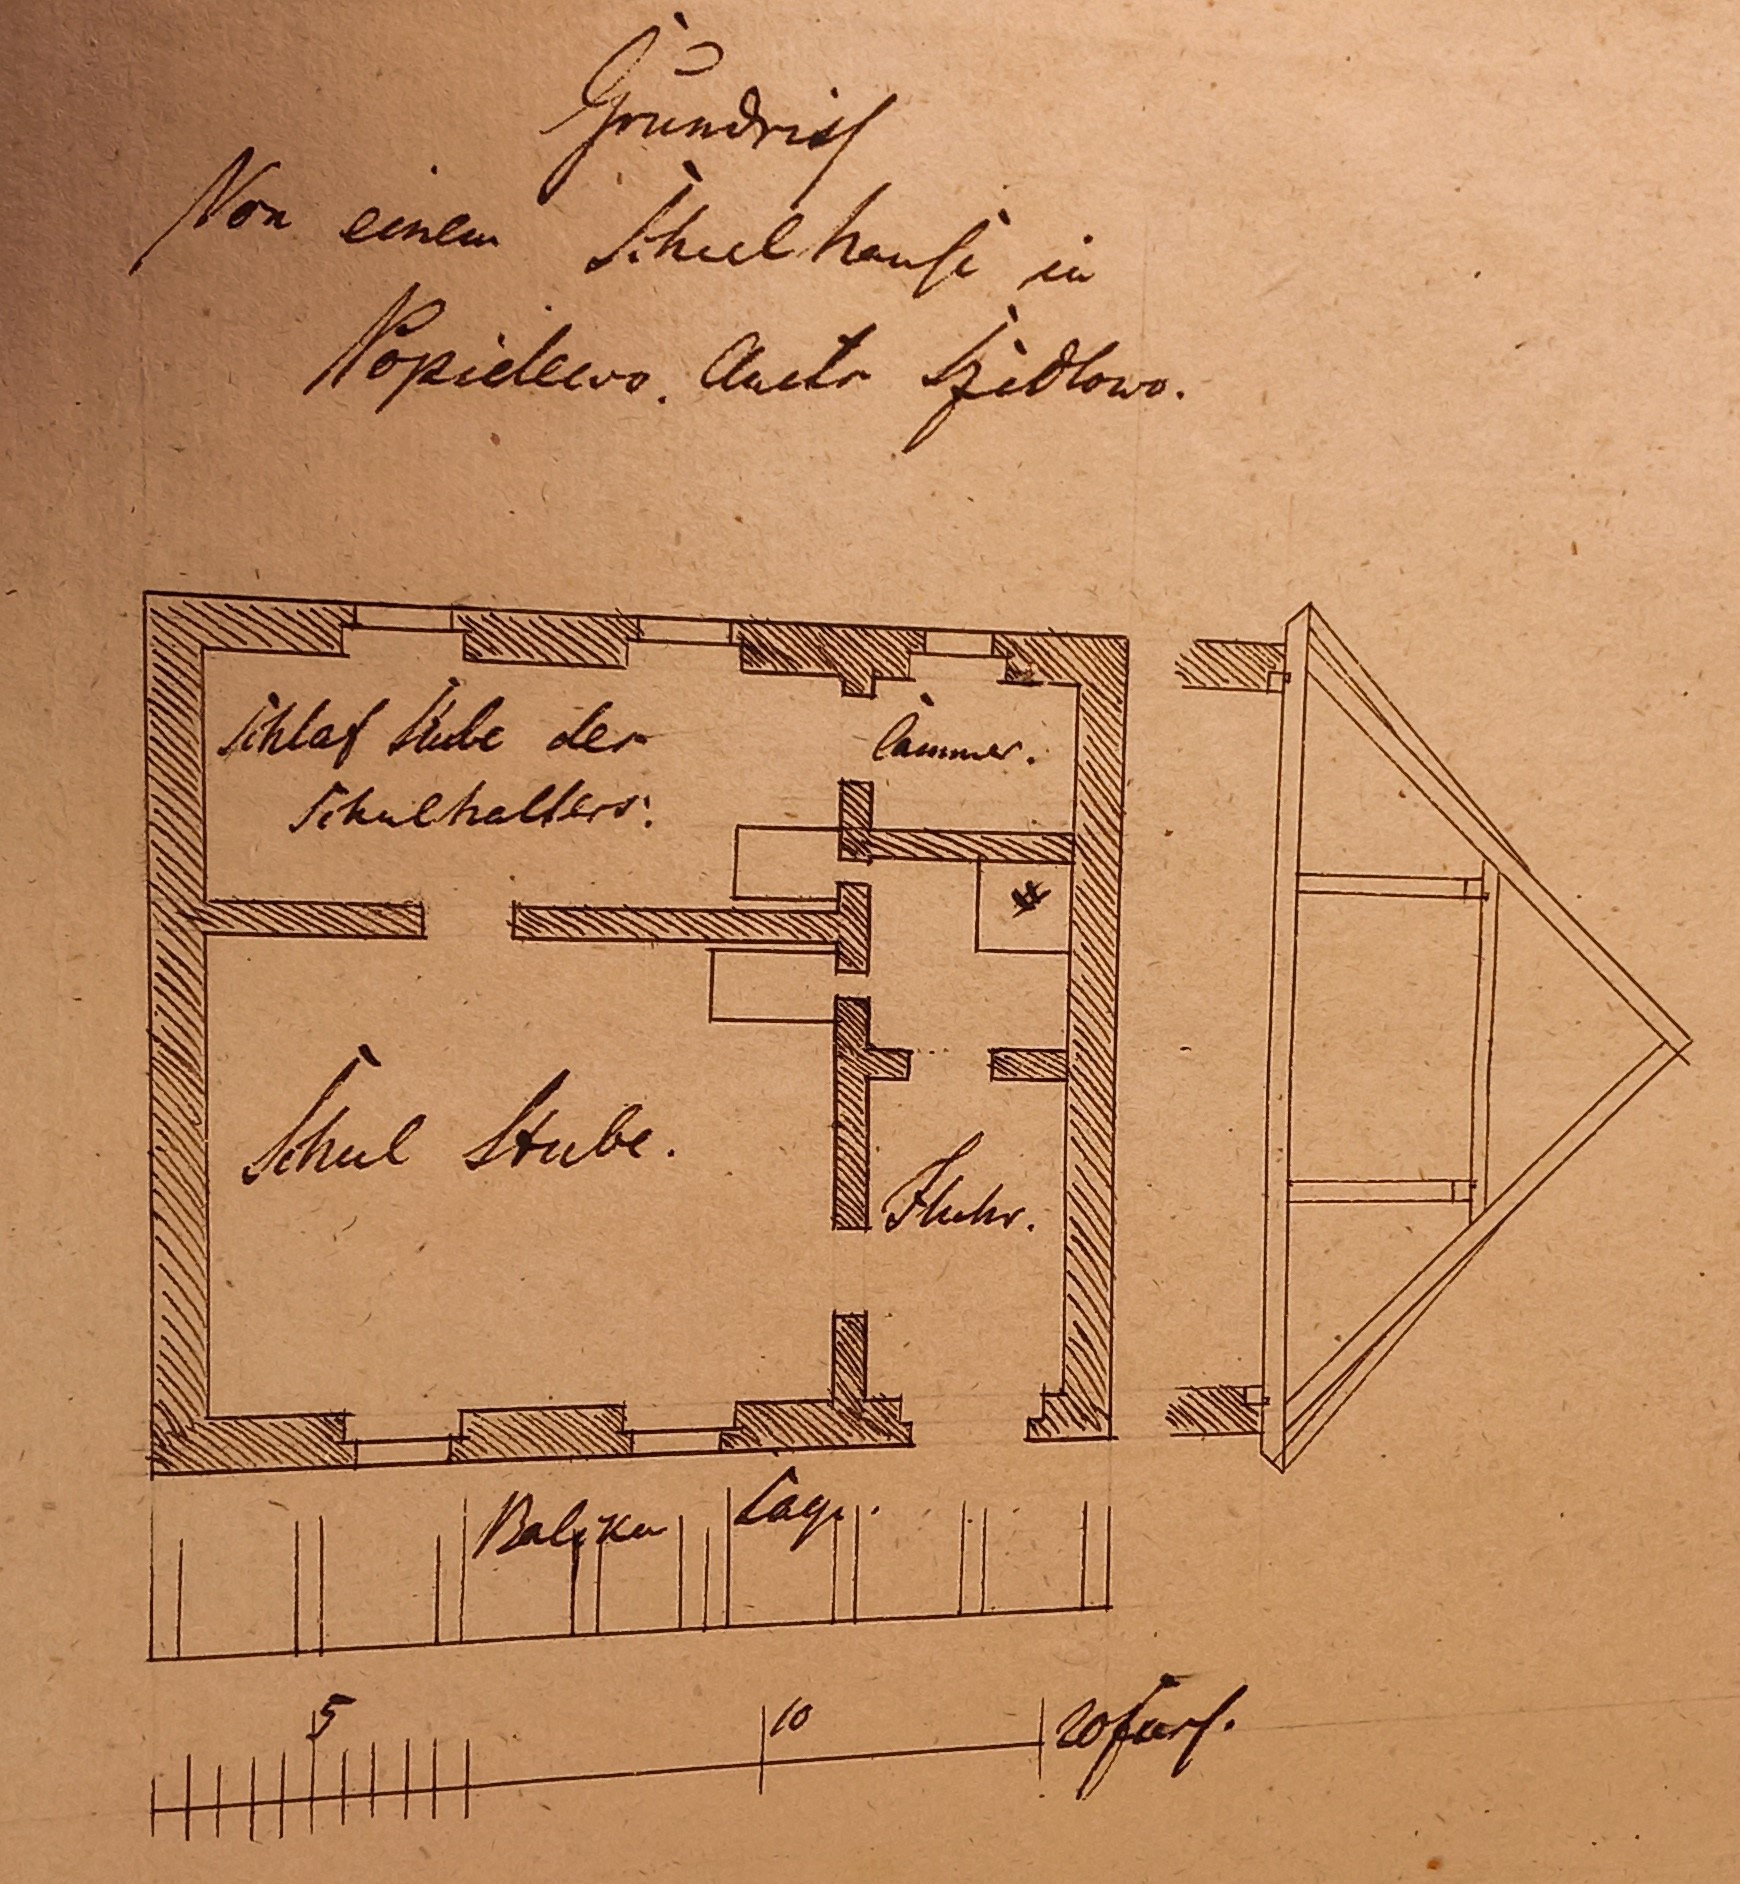 Grundriß
Von einem Schulhause in
Popielewo. Amts Szidlowo.
Schlaf Stube der
Schulhalters.
Cammer.
Schul Stube.
Fluhr.
Balken Lage.
5 10 20 fuss.